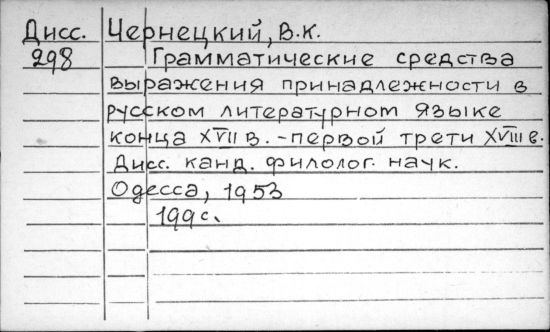 Дисс. Чернецкий, В.К.
298 Грамматические средства
выражения принадлежности в
русском литературном языке
конца XVII в. - первой трети XVIII в.
Дисс. канд. филолог. наук.
Одесса, 1953
199 с.